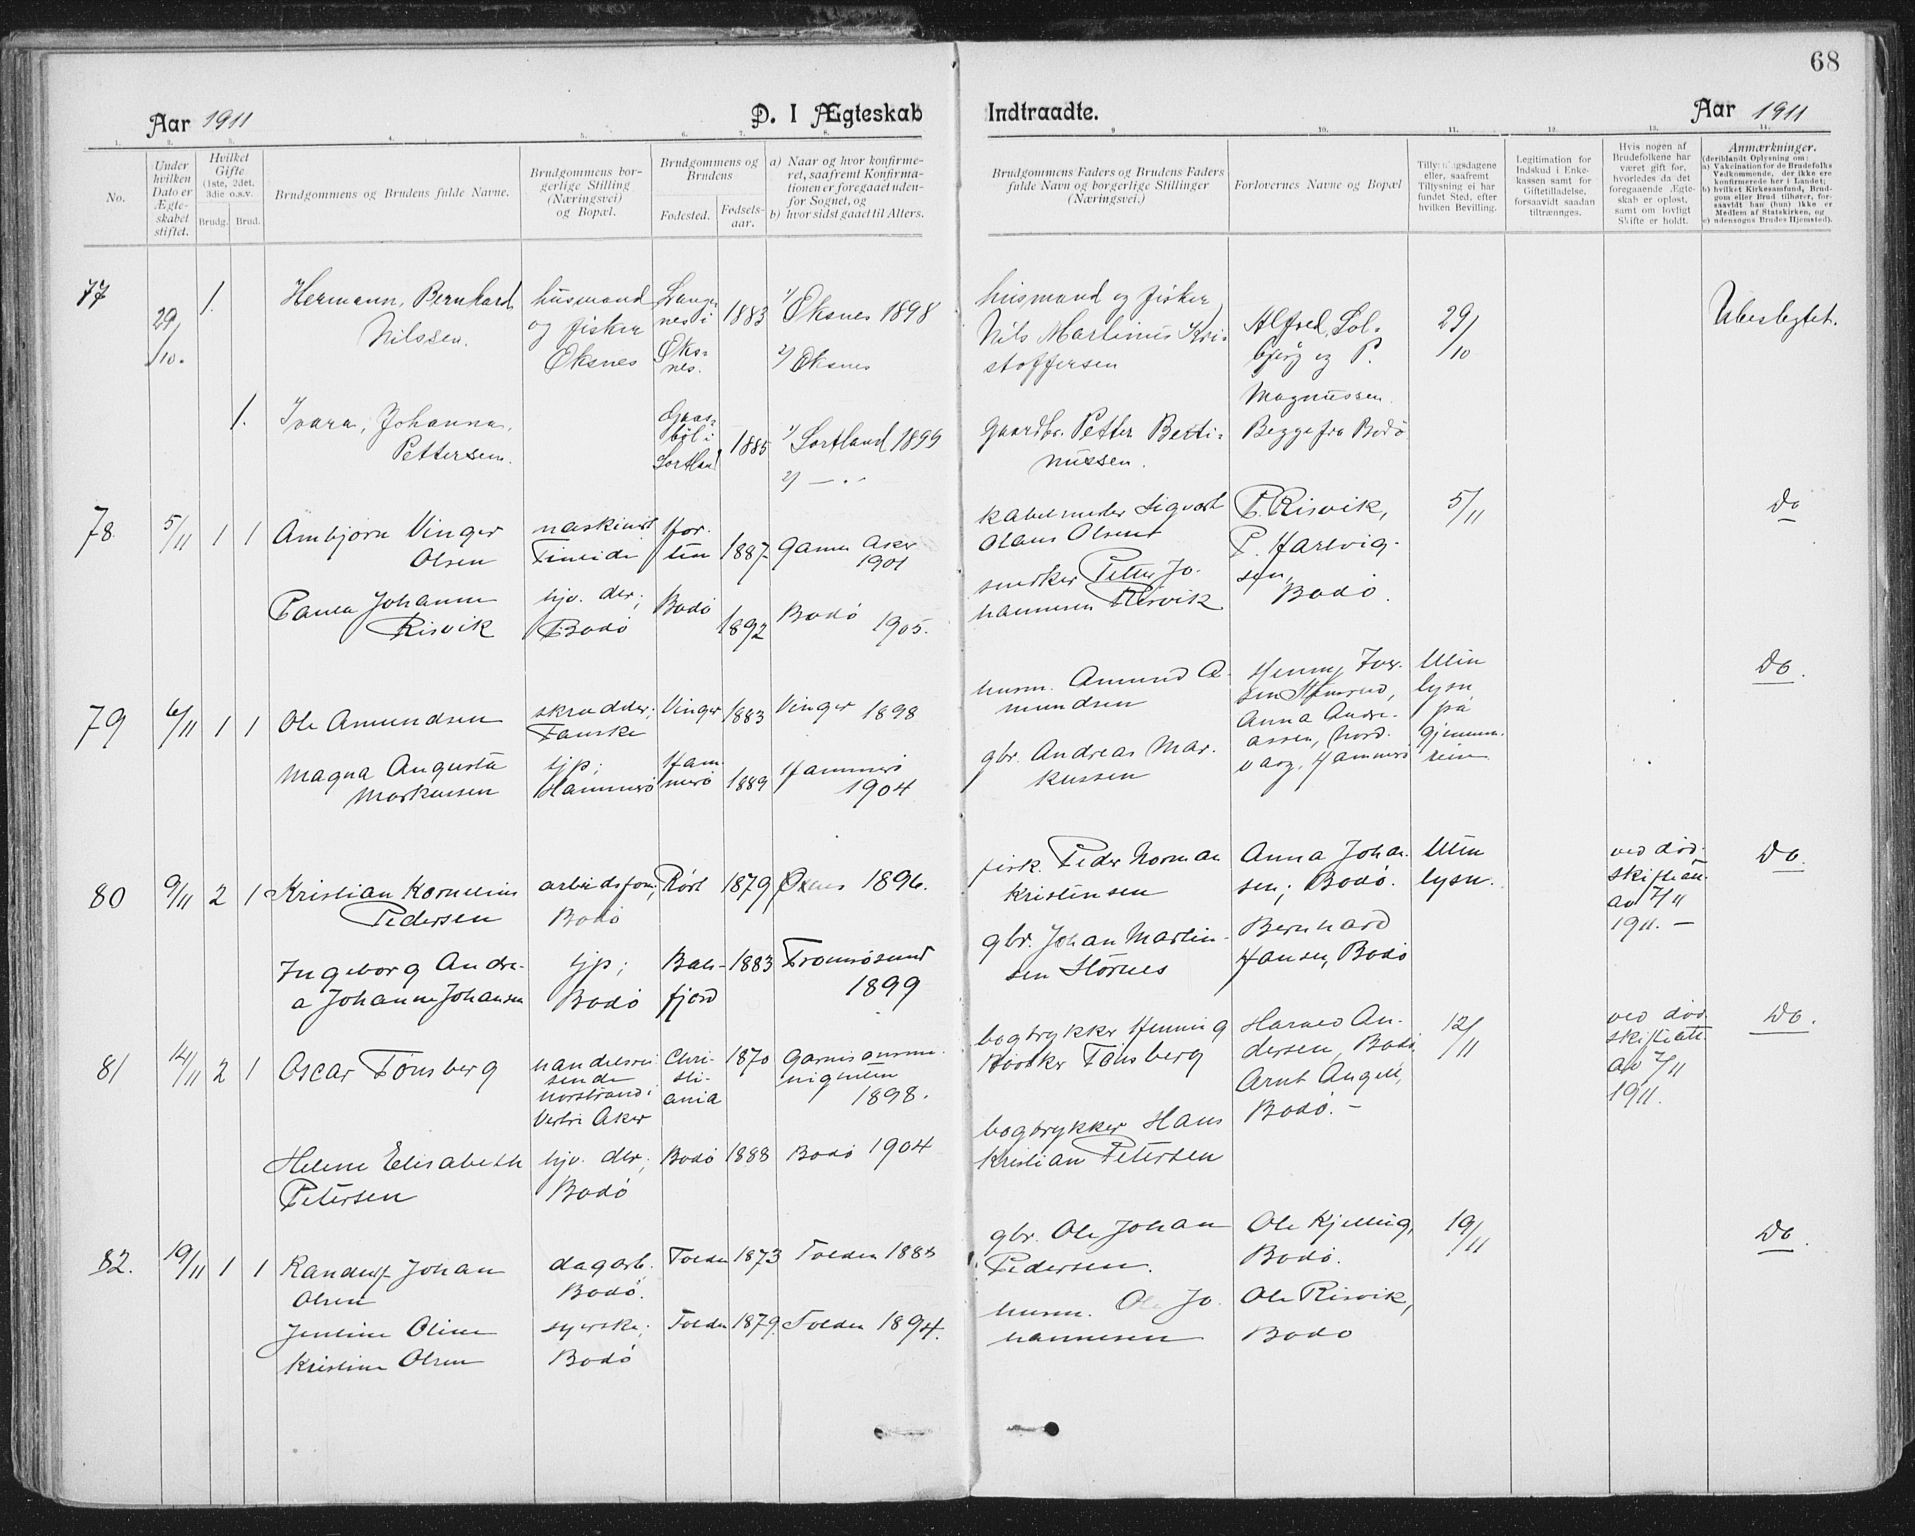 68
Aar 1911
D. I Ægteskab
Indtraadte.
Aar 1911
1. 2. 3. 4. 5. 6. 7. 8. 9. 10. 11. 12. 13. 14.
No.
Under hvilken Dato er Ægteskabet stiftet.
Hvilket Gifte (1ste, 2det, 3die o.s.v.
Brudg. Brud.
Brudgommens og Brudens fulde Navne.
Brudgommens borgerlige Stilling (Næringsvei) og Bopæl.
Brudgommens og Brudens
Fødested. Fødselsaar.
a) Naar og hvor konfirmeret, saafremt Konfirmationen er foregaaet udenfor Sognet, og
b) hvor sidst gaaet til Alters.
Brudgommens Faders og Brudens Faders fulde Navn og borgerlige Stillinger (Næringsvei.)
Forlovernes Navne og Bopæl
Tillysningsdagene eller, saafremt Tillysning ei har fundet Sted, efter hvilken Bevilling.
Legitimation for Indskud i Enkekassen samt for Giftetilladelse, forsaavidt saadan tiltrænges.
Hvis nogen af Brudefolkene har været gift før, hvorledes da det foregaaende Ægteskab er opløst, samt om lovligt Skifte er holdt.
Anmærkninger.
(deriblandt Oplysning om:
a) Vakcination for de Brudefolks Vedkommende, der ikke ere konfirmerede her i Landet;
b) hvilket Kirkesamfund, Brudgom eller Brud tilhører, forsaavidt han (hun) ikke er Medlem af Statskirken, og
c) udensogns Brudes Hjemsted).
77 29/10. 1. Hermann Bernhard
Nilssen.
husmand
og fisker
Øksnes
Langenes i
Øksnes.
1883
1/ Øksnes 1898
2/ Øksnes
husmand og fisker
Nils Martinus Kristoffersen
Alfred Solbjørg og P.
Magnussen.
Begge fra Bodø
29/10
Ubeslegtet.
1. Ivara, Johanna,
Pettersen.
Sortland
1885
1/ Sortland 1899
2/ —
Gaardbr. Petter Bertinussen.
78. 5/11 1 1 Arnbjørn Vinger
Olsen
maskinist
Fineide
Horten
1887
Gamle Aker
1901
Sigvart
Olaus Olsen
P. Risvik,
P. Hartvigsen,
Bodø.
5/11
Do
Paula Johanne
Risvik
hjv. dtr;
Bodø
Bodø
1892
Bodø 1905.
snedker Petter Johannesen Risvik
79 6/11 1 1 Ole Amundsen
skrædder;
Fauske
Vinger
1883
Vinger 1898
husm. Amund Amundsen
Henny
Anna Andreassen,
Hammerø
Do.
Magna Augusta
Markussen
tjp;
Hammerø
Hammerø
1889
Hammerø
1904
gbr. Andreas Markussen
80 9/11 2 1 Kristian Kornelius
Pedersen
Bodø
Røst
1879
1896.
fisk. Peder Norman
Kristensen
Anna Johansen; Bodø.
Bernhard
Hansen, Bodø
lysn.
ved død.
av 7/11
1911. —
Do.
Ingeborg Andrea Johanne Johansen
tjp;
Bodø
Balsfjord
1883
Tromsøsund
1899
gbr. Johan Martinsen Størnes
81 12/11 2 1 Oscar Tønsberg
handelsreisende
Norstrand i
Vestre Aker
Christiania
1870
Garnisonsmenigheten
1898.
bogtrykker Henning
Tønsberg
Harald Andersen, Bodø
Arnt Angell,
Bodø. —
12/11
ved død.
av 7/11
1911.
Do.
Helene Elisabeth
Petersen
hjv. dtr;
Bodø
Bodø
1888
Bodø 1904
bogtrykker Hans
Kristian Petersen
82. 19/11 1 1 Randulf Johan
Olsen
dagarb.
Bodø.
Folden
1873
Folden
gbr. Ole Johan
Pedersen.
Ole Kjelling,
Bodø.
19/11
Do.
Jentine Oline
Kristine Olsen
syerske;
Bodø
Folden
1879.
Folden 1894.
husm. Ole Johannesen
Ole Risvik,
Bodø